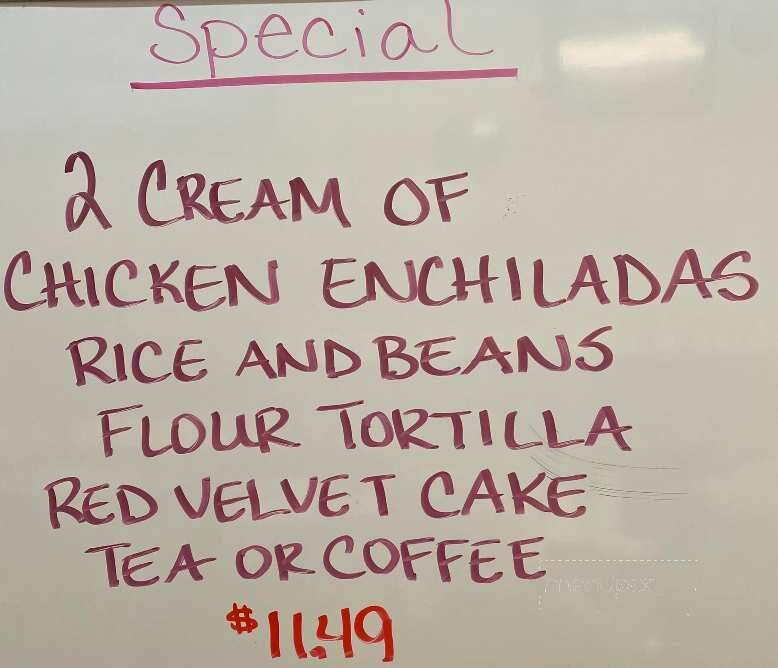 Special
2 CREAM OF
CHICKEN ENCHILADAS
RICE AND BEANS
FLOUR TORTILLA
RED VELVET CAKE
TEA OR COFFEE
$11.49